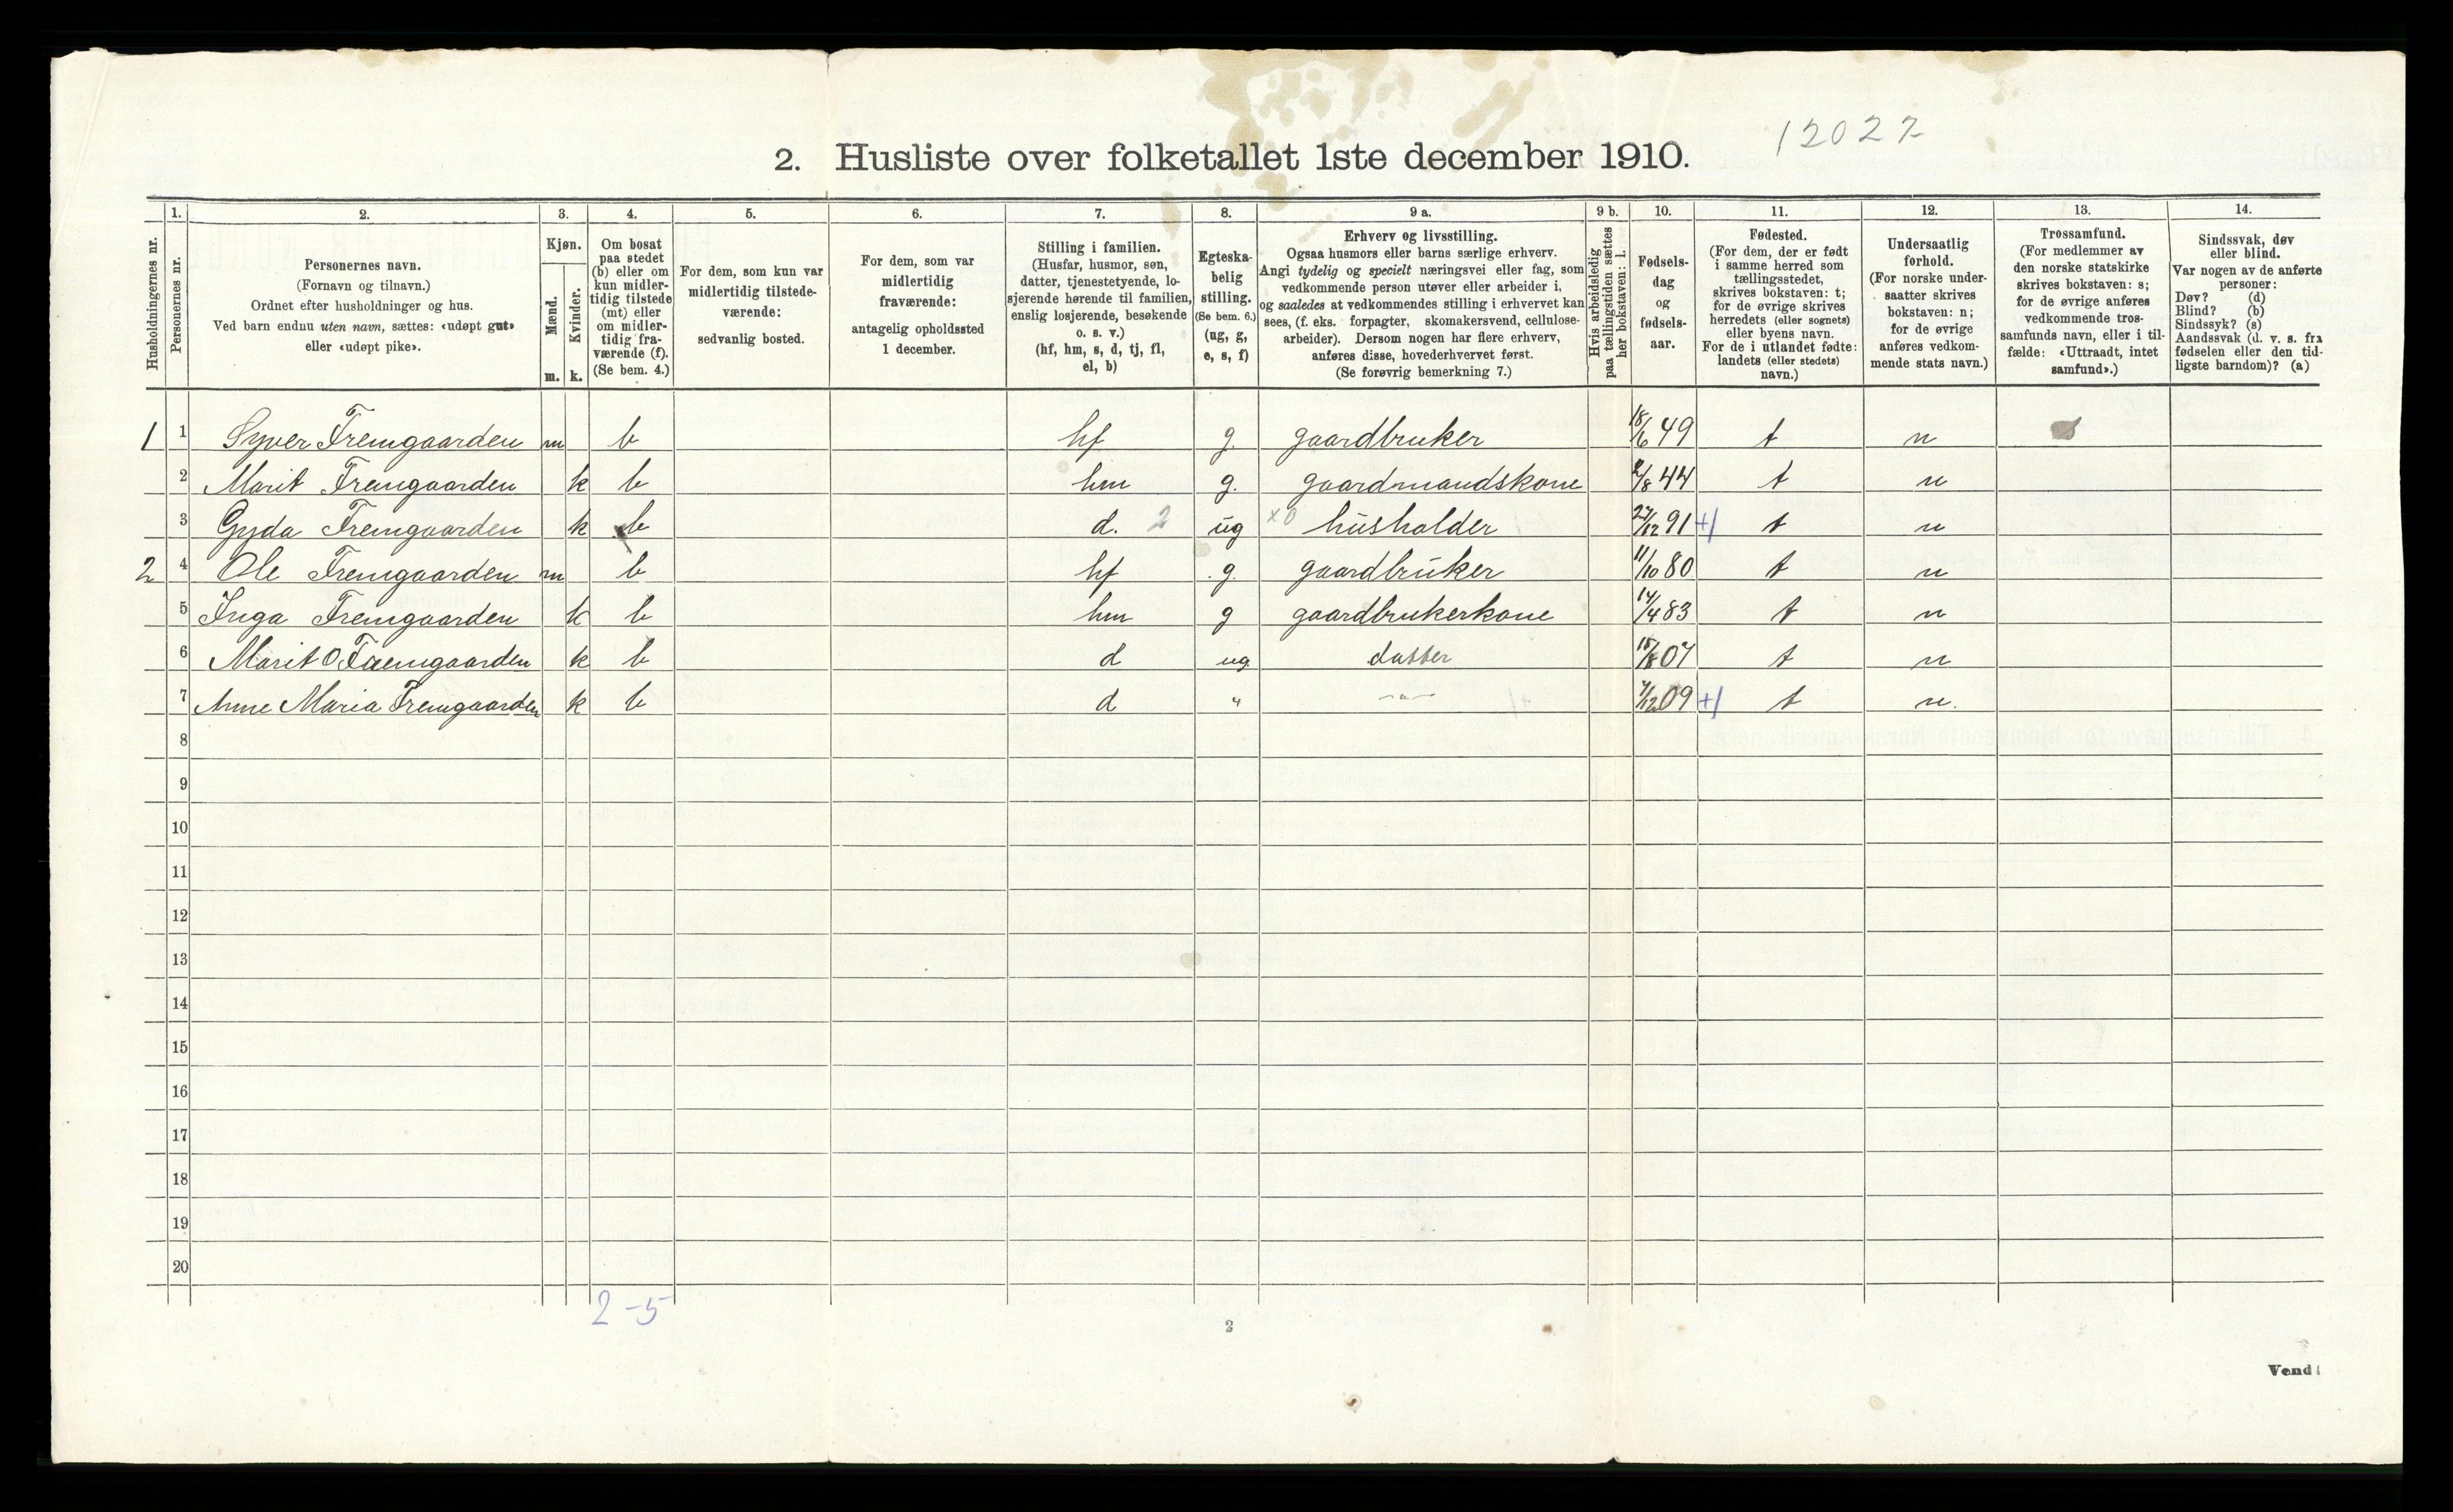 12027
2. Husliste over folketallet 1ste december 1910.
Husholdningernes nr.
1. Personernes nr.
2. Personernes navn. (Fornavn og tilnavn.) Ordnet efter husholdninger og hus. Ved barn endnu uten navn, sættes: «udøpt gut» eller «udøpt pike».
3. Kjøn. Mænd. m. Kvinder. k.
4. Om bosat paa stedet (b) eller om kun midlertidig tilstede (mt) eller om midlertidig fraværende (f). (Se bem. 4.)
5. For dem, som kun var midlertidig tilstedeværende: sedvanlig bosted.
6. For dem, som var midlertidig fraværende: antagelig opholdssted 1 december.
7. Stilling i familien. (Husfar, husmor, søn, datter, tjenestetyende, losjerende hørende til familien, enslig losjerende, besøkende o. s. v.) (hf, hm, s, d, tj, fl, el, b)
8. Egteskabelig stilling. (Se bem. 6.) (ug, g, e, s, f)
9 a. Erhverv og livsstilling. Ogsaa husmors eller barns særlige erhverv. Angi tydelig og specielt næringsvei eller fag, som vedkommende person utøver eller arbeider i, og saaledes at vedkommendes stilling i erhvervet kan sees, (f. eks. forpagter, skomakersvend, cellulosearbeider). Dersom nogen har flere erhverv, anføres disse, hovederhvervet først. (Se forøvrig bemerkning 7.)
9 b. Hvis arbeidsledig paa tællingstiden sættes her bokstaven: l.
10. Fødselsdag og fødselsaar.
11. Fødested. (For dem, der er født i samme herred som tællingsstedet, skrives bokstaven: t; for de øvrige skrives herredets (eller sognets) eller byens navn. For de i utlandet fødte: landets (eller stedets) navn.)
12. Undersaatlig forhold. (For norske undersaatter skrives bokstaven: n; for de øvrige anføres vedkommende stats navn.)
13. Trossamfund. (For medlemmer av den norske statskirke skrives bokstaven: s; for de øvrige anføres vedkommende trossamfunds navn, eller i tilfælde: «Uttraadt, intet samfund».)
14. Sindssvak, døv eller blind. Var nogen av de anførte personer: Døv? (d) Blind? (b) Sindssyk? (s) Aandssvak (d. v. s. fra fødselen eller den tidligste barndom)? (a)
1 1 Syver Fremgaarden m b hf g. gaardbruker 18/6 49 t n
2 Marit Fremgaarden k b hm g. gaardmandskone 2/8 44 t n
3 Gyda Fremgaarden k b d. 2 ug x0 husholder 27/12 91 +1 t n
2 4 Ole Fremgaarden m b hf g. gaardbruker 11/10 80 t n
5 Inga Fremgaarden k b hm g gaardbrukerkone 14/4 83 t n
6 Marit O Fremgaarden k b d ug. datter 15/8 07 t n
7 Anne Maria Fremgaarden k b d " -"- 7/12 09 +1 t n.
8
9
10
11
12
13
14
15
16
17
18
19
20
2 - 5
2
Vend!